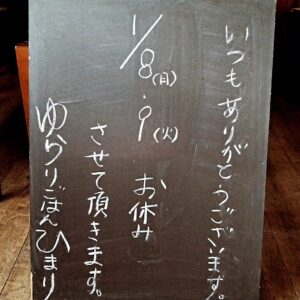 いつもありがとうございます。
1/8(日)・9(火)お休み
させて頂きます。
ゆらりごはんひまり